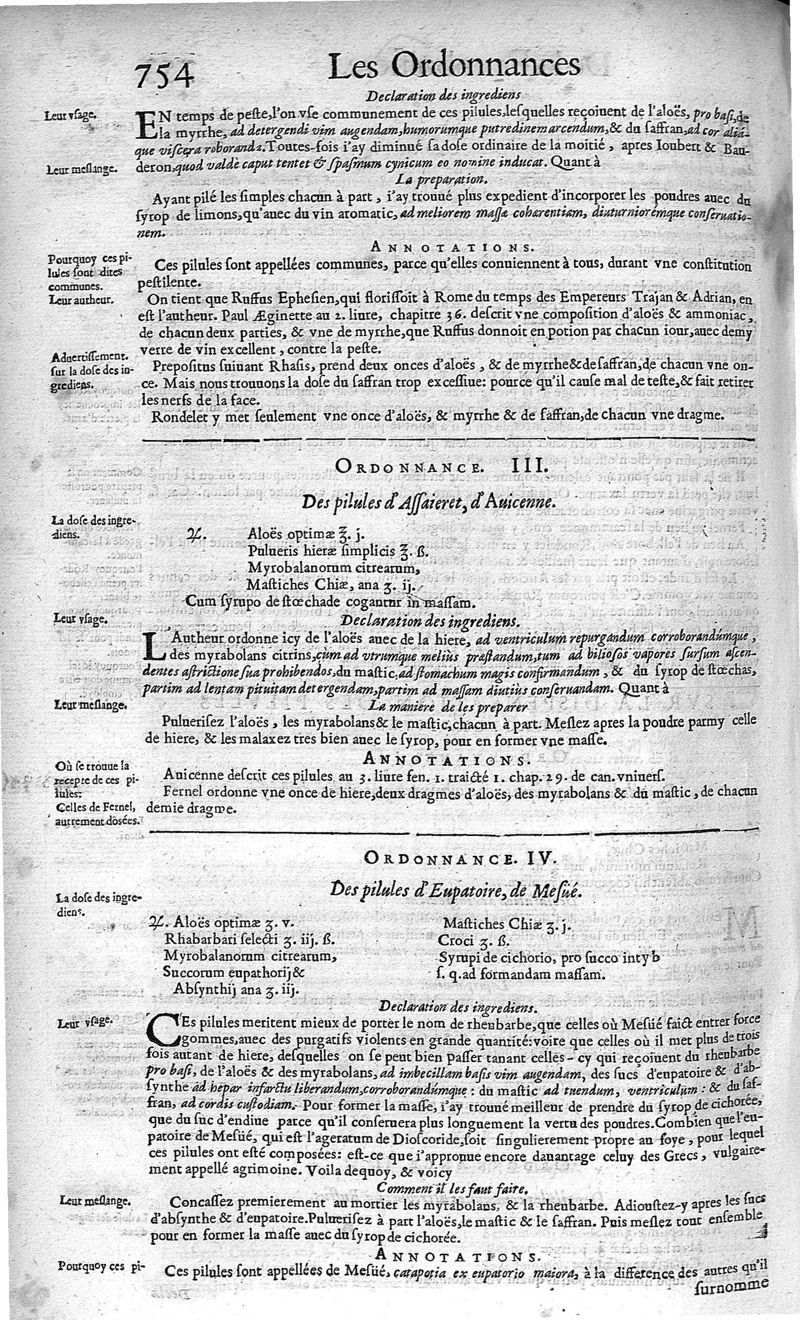 754
Les Ordonnances
Declaration des ingrediens
Leur vſage.
EN temps de peſte, l'on vſe communement de ces pilules, leſquelles reçoiuent de l'aloës, pro baſi, de
la myrrhe, ad detergendi vim augendam, humorumque putredinem arcendum, & du ſaffran, ad cor aliá-
que viſcera roboranda. Toutes-fois i'ay diminué ſa doſe ordinaire de la moitié, apres Ioubert & Bau-
Leur meſlange.
deron, quod valde caput tentet & ſpaſmum cynicum eo nomine inducat. Quant à
La preparation.
Ayant pilé les ſimples chacun à part, i'ay trouué plus expedient d'incorporer les poudres auec du
ſyrop de limons, qu'auec du vin aromatic, ad meliorem maſſæ cohærentiam, diuturnioremque conſeruatio-
nem.
ANNOTATIONS.
Pourquoy ces pi-
lules ſont dites
communes.
Ces pilules ſont appellées communes, parce qu'elles conuiennent à tous, durant vne conſtitution
peſtilente.
Leur autheur.
On tient que Ruffus Epheſien, qui floriſſoit à Rome du temps des Empereurs Trajan & Adrian, en
eſt l'autheur. Paul Æginette au 2. liure, chapitre 36. deſcrit vne compoſition d'aloës & ammoniac,
de chacun deux parties, & vne de myrrhe, que Ruffus donnoit en potion par chacun iour, auec demy
verre de vin excellent, contre la peſte.
Aduertiſſement.
ſur la doſe des in-
grediens.
Prepoſitus ſuiuant Rhaſis, prend deux onces d'aloës, & de myrrhe & de ſaffran, de chacun vne on-
ce. Mais nous trouuons la doſe du ſaffran trop exceſſiue: pource qu'il cauſe mal de teſte, & fait retirer
les nerfs de la face.
Rondelet y met ſeulement vne once d'aloës, & myrrhe & de ſaffran, de chacun vne dragme.
ORDONNANCE. III.
Des pilules d'Aſſaieret, d'Auicenne.
La doſe des ingre-
diens.
♃. Aloës optimæ ℥. j.
Pulueris hieræ ſimplicis ℥. ß.
Myrobalanorum citrearum,
Maſtiches Chiæ, ana ʒ. ij.
Cum ſyrupo de ſtœchade cogantur in maſſam.
Declaration des ingrediens.
Leur vſage.
L'Autheur ordonne icy de l'aloës auec de la hiere, ad ventriculum repurgandum corroborandúmque,
des myrabolans citrins, cùm ad vtrumque melius præſtandum, tum ad bilioſos vapores ſurſum aſcen-
dentes aſtrictione ſua prohibendos, du maſtic, ad ſtomachum magis confirmandum, & du ſyrop de ſtœchas,
partim ad lentam pituitam detergendam, partim ad maſſam diutius conſeruandam. Quant à
Leur meſlange.
La maniere de les preparer
Pulueriſez l'aloës, les myrabolans & le maſtic, chacun à part. Meſlez apres la poudre parmy celle
de hiere, & les malaxez tres bien auec le ſyrop, pour en former vne maſſe.
ANNOTATIONS.
Où ſe trouue la
recepte de ces pi-
lules:
Auicenne deſcrit ces pilules au 3. liure fen. 1. traicté 1. chap. 29. de can. vniuerſ.
Celles de Fernel,
autrement doſées.
Fernel ordonne vne once de hiere, deux dragmes d'aloës, des myrabolans & du maſtic, de chacun
demie dragme.
ORDONNANCE. IV.
Des pilules d'Eupatoire, de Meſüé.
La doſe des ingre-
diens.
♃. Aloës optimæ ʒ. v.
Rhabarbari ſelecti ʒ. iij. ß.
Myrobalanorum citrearum,
Succorum eupathorij &
Abſynthij ana ʒ. iij.
Maſtiches Chiæ ʒ. j.
Croci ʒ. ß.
Syrupi de cichorio, pro ſucco intyb
ſ. q. ad formandam maſſam.
Declaration des ingrediens.
Leur vſage.
CEs pilules meritent mieux de porter le nom de rheubarbe, que celles où Meſüé faict entrer force
gommes, auec des purgatifs violents en grande quantité: voire que celles où il met plus de trois
fois autant de hiere, deſquelles on ſe peut bien paſſer tanant celles-cy qui reçoiuent du rheubarbe
pro baſi, de l'aloës & des myrabolans, ad imbecillam baſis vim augendam, des ſucs d'eupatoire & d'ab-
ſynthe ad hepar infarctu liberandum, corroborandúmque: du maſtic ad tuendum, ventriculum: & du ſaf-
fran, ad cordis cuſtodiam. Pour former la maſſe, i'ay trouué meilleur de prendre du ſyrop de cichorée,
que du ſuc d'endiue parce qu'il conſeruera plus longuement la vertu des poudres. Combien que l'eu-
patoire de Meſué, qui eſt l'ageratum de Dioſcoride, ſoit ſingulierement propre au foye, pour lequel
ces pilules ont eſté compoſées: eſt-ce que i'approuue encore dauantage celuy des Grecs, vulgaire-
ment appellé agrimoine. Voila dequoy, & voicy
Comment il les faut faire.
Leur meſlange.
Concaſſez premierement au mortier les myrabolans, & la rheubarbe. Adiouſtez-y apres les ſucs
d'abſynthe & d'eupatoire. Pulueriſez à part l'aloës, le maſtic & le ſaffran. Puis meſlez tout enſemble
pour en former la maſſe auec du ſyrop de cichorée.
ANNOTATIONS.
Pourquoy ces pi-
Ces pilules ſont appellées de Meſué, catapotia ex eupatorio maiora, à la difference des autres qu'il
ſurnomme